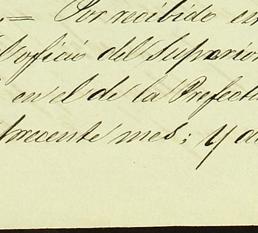 = Por recibido en
oficio del Superior
en el de la Prefectu
presente mes; y de